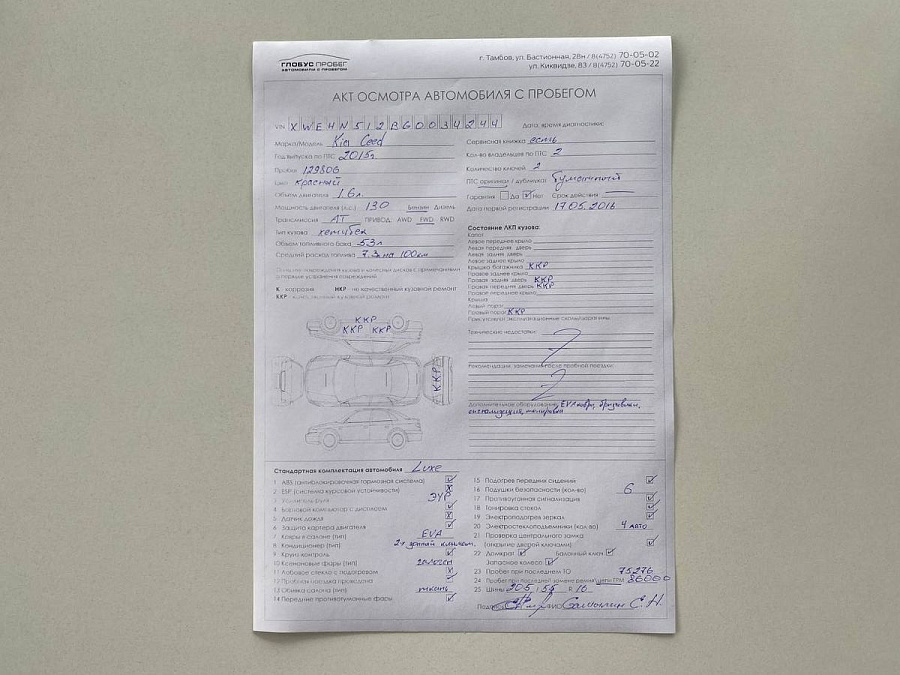 ГЛОБУС ПРОБЕГ
АВТОМОБИЛИ С ПРОБЕГОМ
г. Тамбов, ул. Бастионная, 28н / 8(4752) 70-05-02
ул. Киквидзе, 83 / 8(4752) 70-05-22
АКТ ОСМОТРА АВТОМОБИЛЯ С ПРОБЕГОМ
VIN XWEHN512BG0034244
Дата: время диагностики:
Марка/Модель Kia Ceed
Год выпуска по ПТС 2015г.
Пробег 129806
Цвет красный
Объем двигателя 1.6 л.
Мощность двигателя (л.с.) 130 Бензин Дизель
Трансмиссия АТ ПРИВОД: AWD FWD RWD
Тип кузова хетчбек
Объем топливного бака 53л
Средний расход топлива 7.3л на 100км
Сервисная книжка есть
Кол-во владельцев по ПТС 2
Количество ключей 2
ПТС оригинал / дубликат бумажный
Гарантия Да Нет Срок действия
Дата первой регистрации 17.05.2016
К коррозия НКР не качественный кузовной ремонт
ККР качественный кузовной ремонт
ККР
ККР ККР
ККР
Состояние ЛКП кузова:
Капот
Левое переднее крыло
Левая передняя дверь
Левая задняя дверь
Левое заднее крыло
Крышка багажника ККР
Правое заднее крыло
Правая задняя дверь ККР
Правая передняя дверь ККР
Правое переднее крыло
Крыша
Левый порог
Правый порог ККР
Присутствуют эксплуатационные сколы/царапины
Технические недостатки:
Рекомендации, замечания после пробной поездки:
Дополнительное оборудование: EVA ковры, брызговики,
сигнализация, тонировка
Стандартная комплектация автомобиля Luxe
1 ABS (антиблокировочная тормозная система)
2 ESP (система курсовой устойчивости)
3 Усилитель руля ЭУР
4 Бортовой компьютер с дисплеем
5 Датчик дождя
6 Защита картера двигателя
7 Ковры в салоне (тип) EVA
8 Кондиционер (тип) 2х зонный климат.
9 Круиз контроль
10 Ксеноновые фары (тип) галоген
11 Лобовое стекло с подогревом
12 Пробная поездка проводилась
13 Обивка салона (тип) ткань
14 Передние противотуманные фары
15 Подогрев передних сидений
16 Подушки безопасности (кол-во) 6
17 Противоугонная сигнализация
18 Тонировка стекол
19 Электроподогрев зеркал
20 Электростеклоподъемники (кол-во) 4 авто
21 Проверка центрального замка
(открытие дверей ключами)
22 Домкрат Балонный ключ
Запасное колесо
23 Пробег при последнем ТО 75276
24 Пробег при последней замене ремня/цепи ГРМ 86000
25 Шины 205 / 55 R 16
Подпись ФИО С.Н.